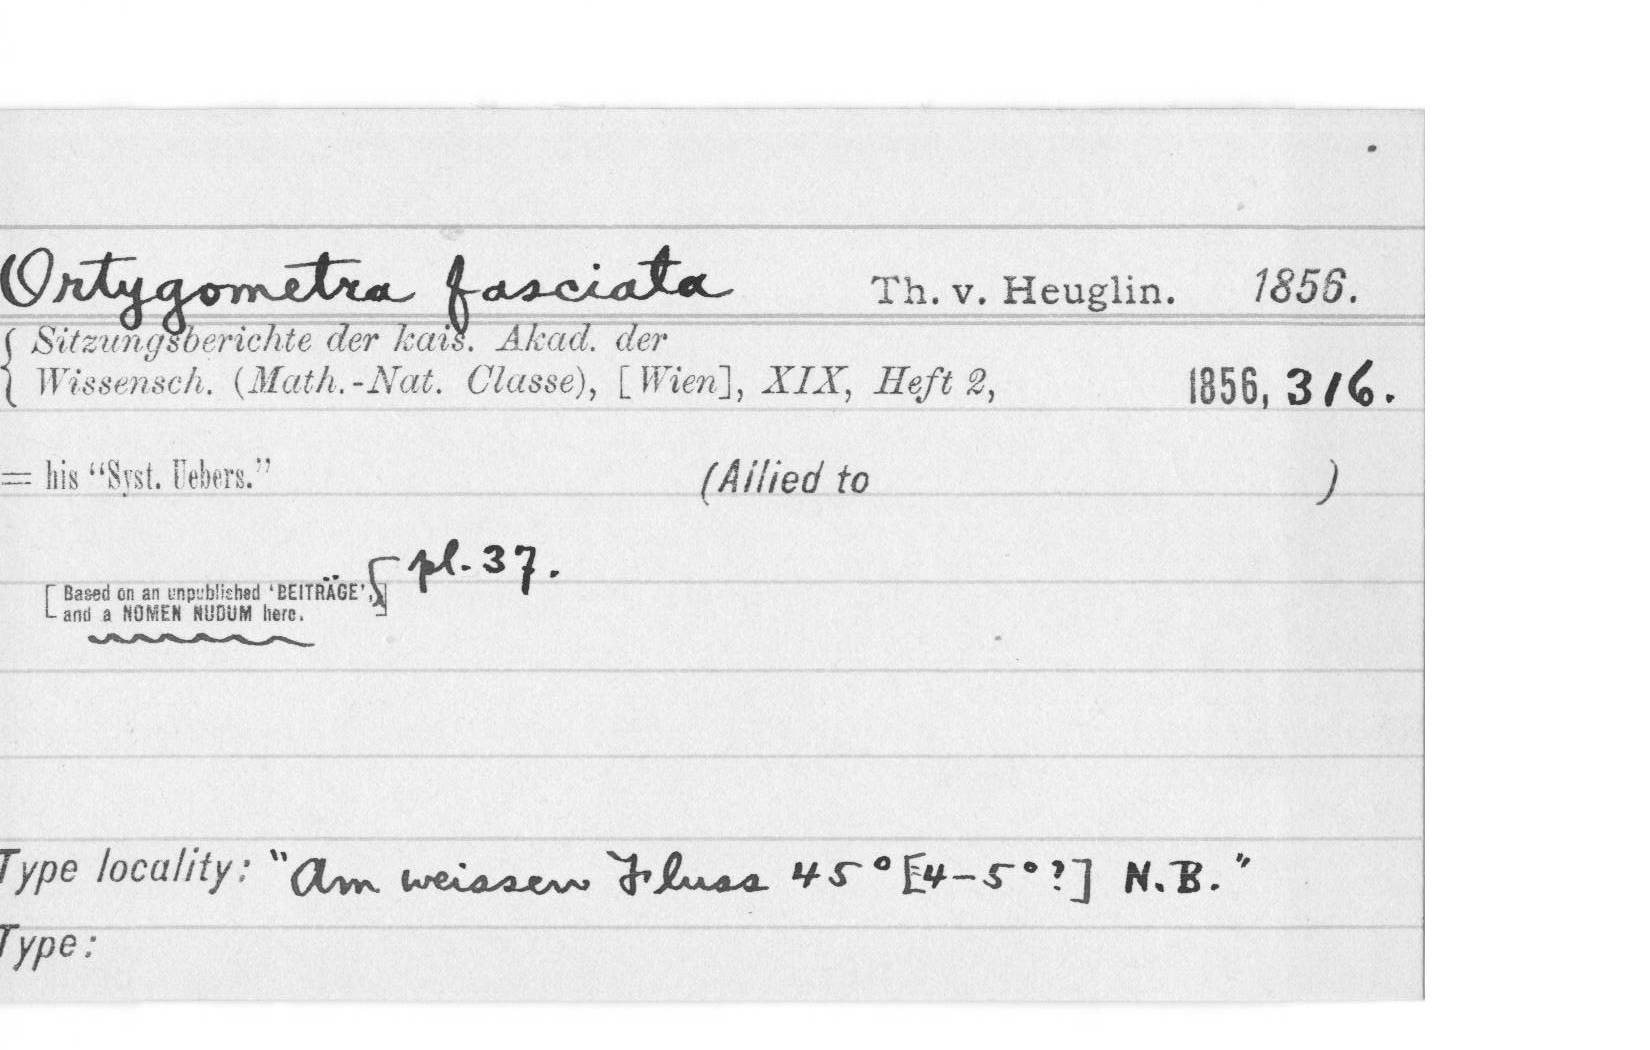 Ortygometra fasciata Th. v. Heuglin. 1856.
{ Sitzungsberichte der kais. Akad. der
Wissensch. (Math.-Nat. Classe), [Wien], XIX, Heft 2, 1856, 316.
= his “Syst. Uebers.” (Allied to )
pl. 37.
[Based on an unpublished ‘BEITRÄGE’,
and a NOMEN NUDUM here.]
Type locality: "Am weissen Fluss 45° [4-5°?] N.B."
Type: